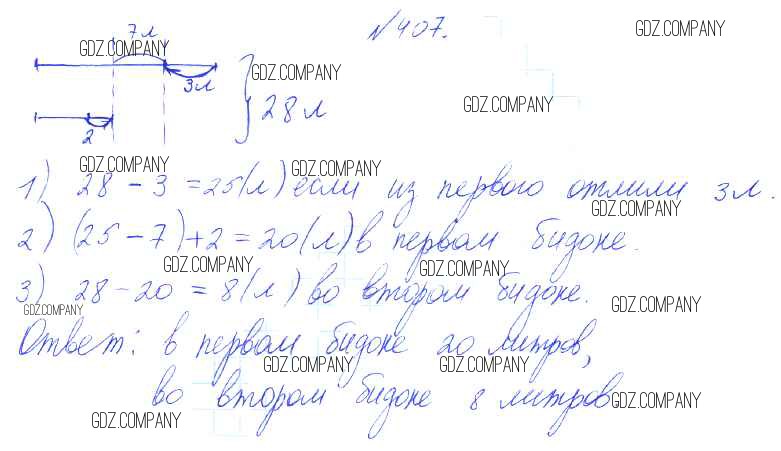 №407.
7 л
GDZ.COMPANY GDZ.COMPANY
GDZ.COMPANY
3л
28 л
GDZ.COMPANY
2
GDZ.COMPANY GDZ.COMPANY
1) 28 - 3 = 25(л) если из первого отлили 3 л.
GDZ.COMPANY
2) (25 - 7) + 2 = 20(л) в первом бидоне.
GDZ.COMPANY GDZ.COMPANY
3) 28 - 20 = 8(л) во втором бидоне.
GDZ.COMPANY GDZ.COMPANY
Ответ: в первом бидоне 20 литров,
GDZ.COMPANY GDZ.COMPANY
во втором бидоне 8 литров
GDZ.COMPANY
GDZ.COMPANY